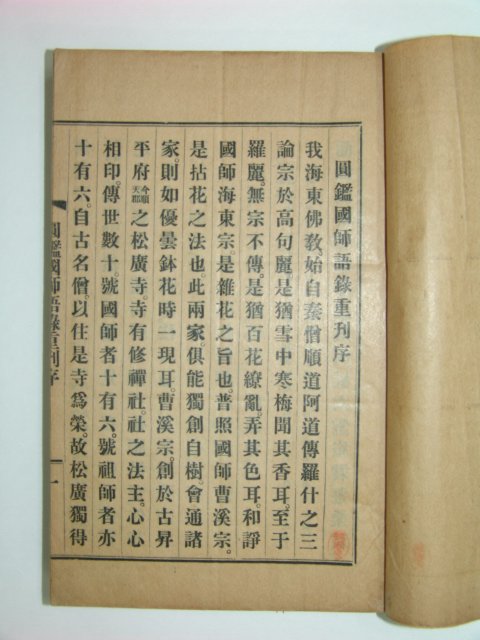 圓鑑國師語錄重刊序
我海東佛敎。始自秦僧順道阿道傳羅什之三
論宗於高句麗。是猶雪中寒梅聞其香耳。至于
羅麗。無宗不傳。是猶百花繚亂。弄其色耳。和諍
國師海東宗。是雜花之旨也。普照國師曹溪宗。
是拈花之法也。此兩家。俱能獨創自樹。會通諸
家。則如優曇鉢花時一現耳。曹溪宗。創於古昇
平府今順天郡之松廣寺。寺有修禪社。社之法主。心心
相印。傳世數十。號國師者十有六。號祖師者亦
十有六。自古名僧。以住是寺爲榮。故松廣獨得
圓鑑國師語錄重刊序 一